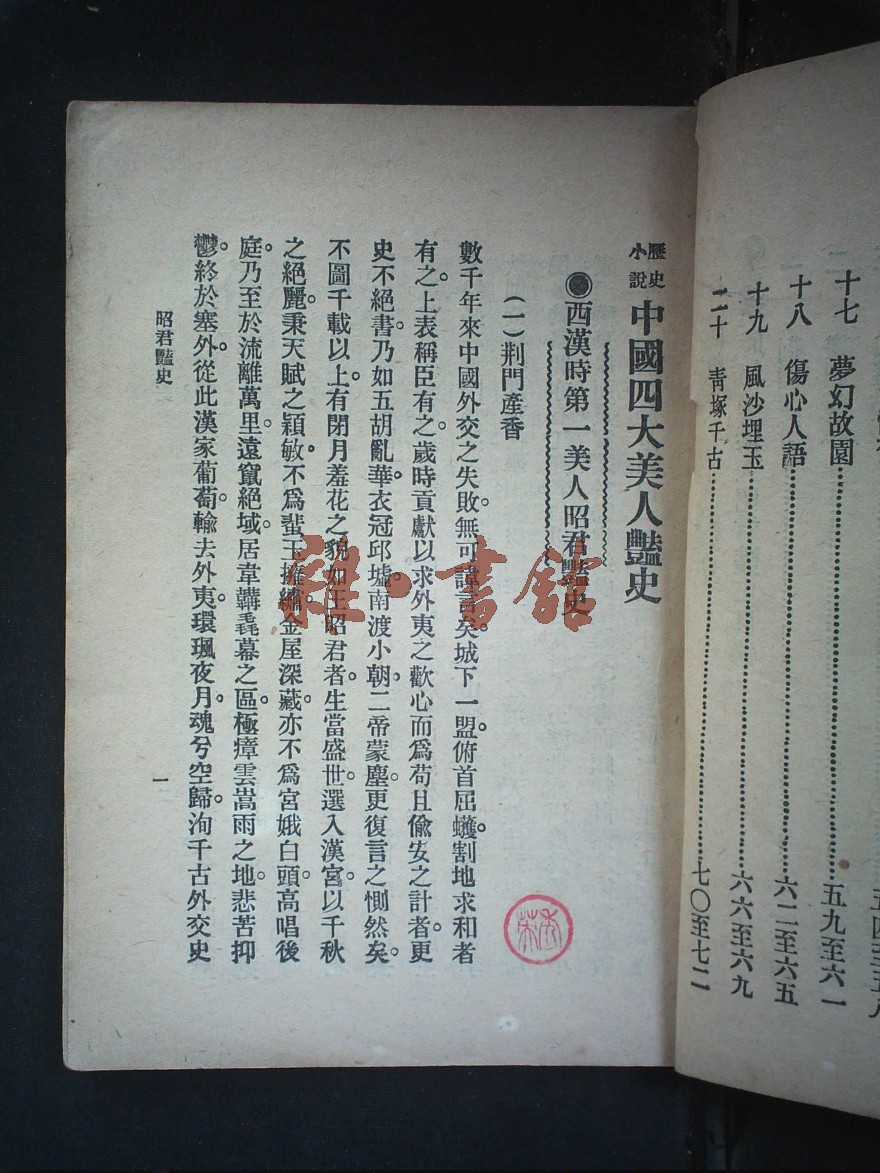 十七 夢幻故園………五九至六一
十八 傷心人語………六二至六五
十九 風沙埋玉………六六至六九
二十 青塚千古………七〇至七二
歷史小說 中國四大美人豔史
●西漢時第一美人昭君豔史
(一)荆門產香
數千年來中國外交之失敗。無可諱言矣。城下一盟。俯首屈蠖。割地求和者
有之。上表稱臣有之。歲時貢獻以求外夷之歡心而爲苟且偸安之計者。更
史不絕書。乃如五胡亂華。衣冠邱墟。南渡小朝。二帝蒙塵。更復言之惻然矣。
不圖千載以上。有閉月羞花之貌如王昭君者。生當盛世。選入漢宮。以千秋
之絕麗。秉天賦之穎敏。不爲輩玉擁繡。金屋深藏。亦不爲宮娥白頭。高唱後
庭。乃至於流離萬里。遠竄絕域。居韋韝毳幕之區。極瘴雲嵩雨之地。悲苦抑
鬱。終於塞外。從此漢家葡萄。輸去外夷。環珮夜月。魂兮空歸。洵千古外交史
昭君豔史
一
雜·書館